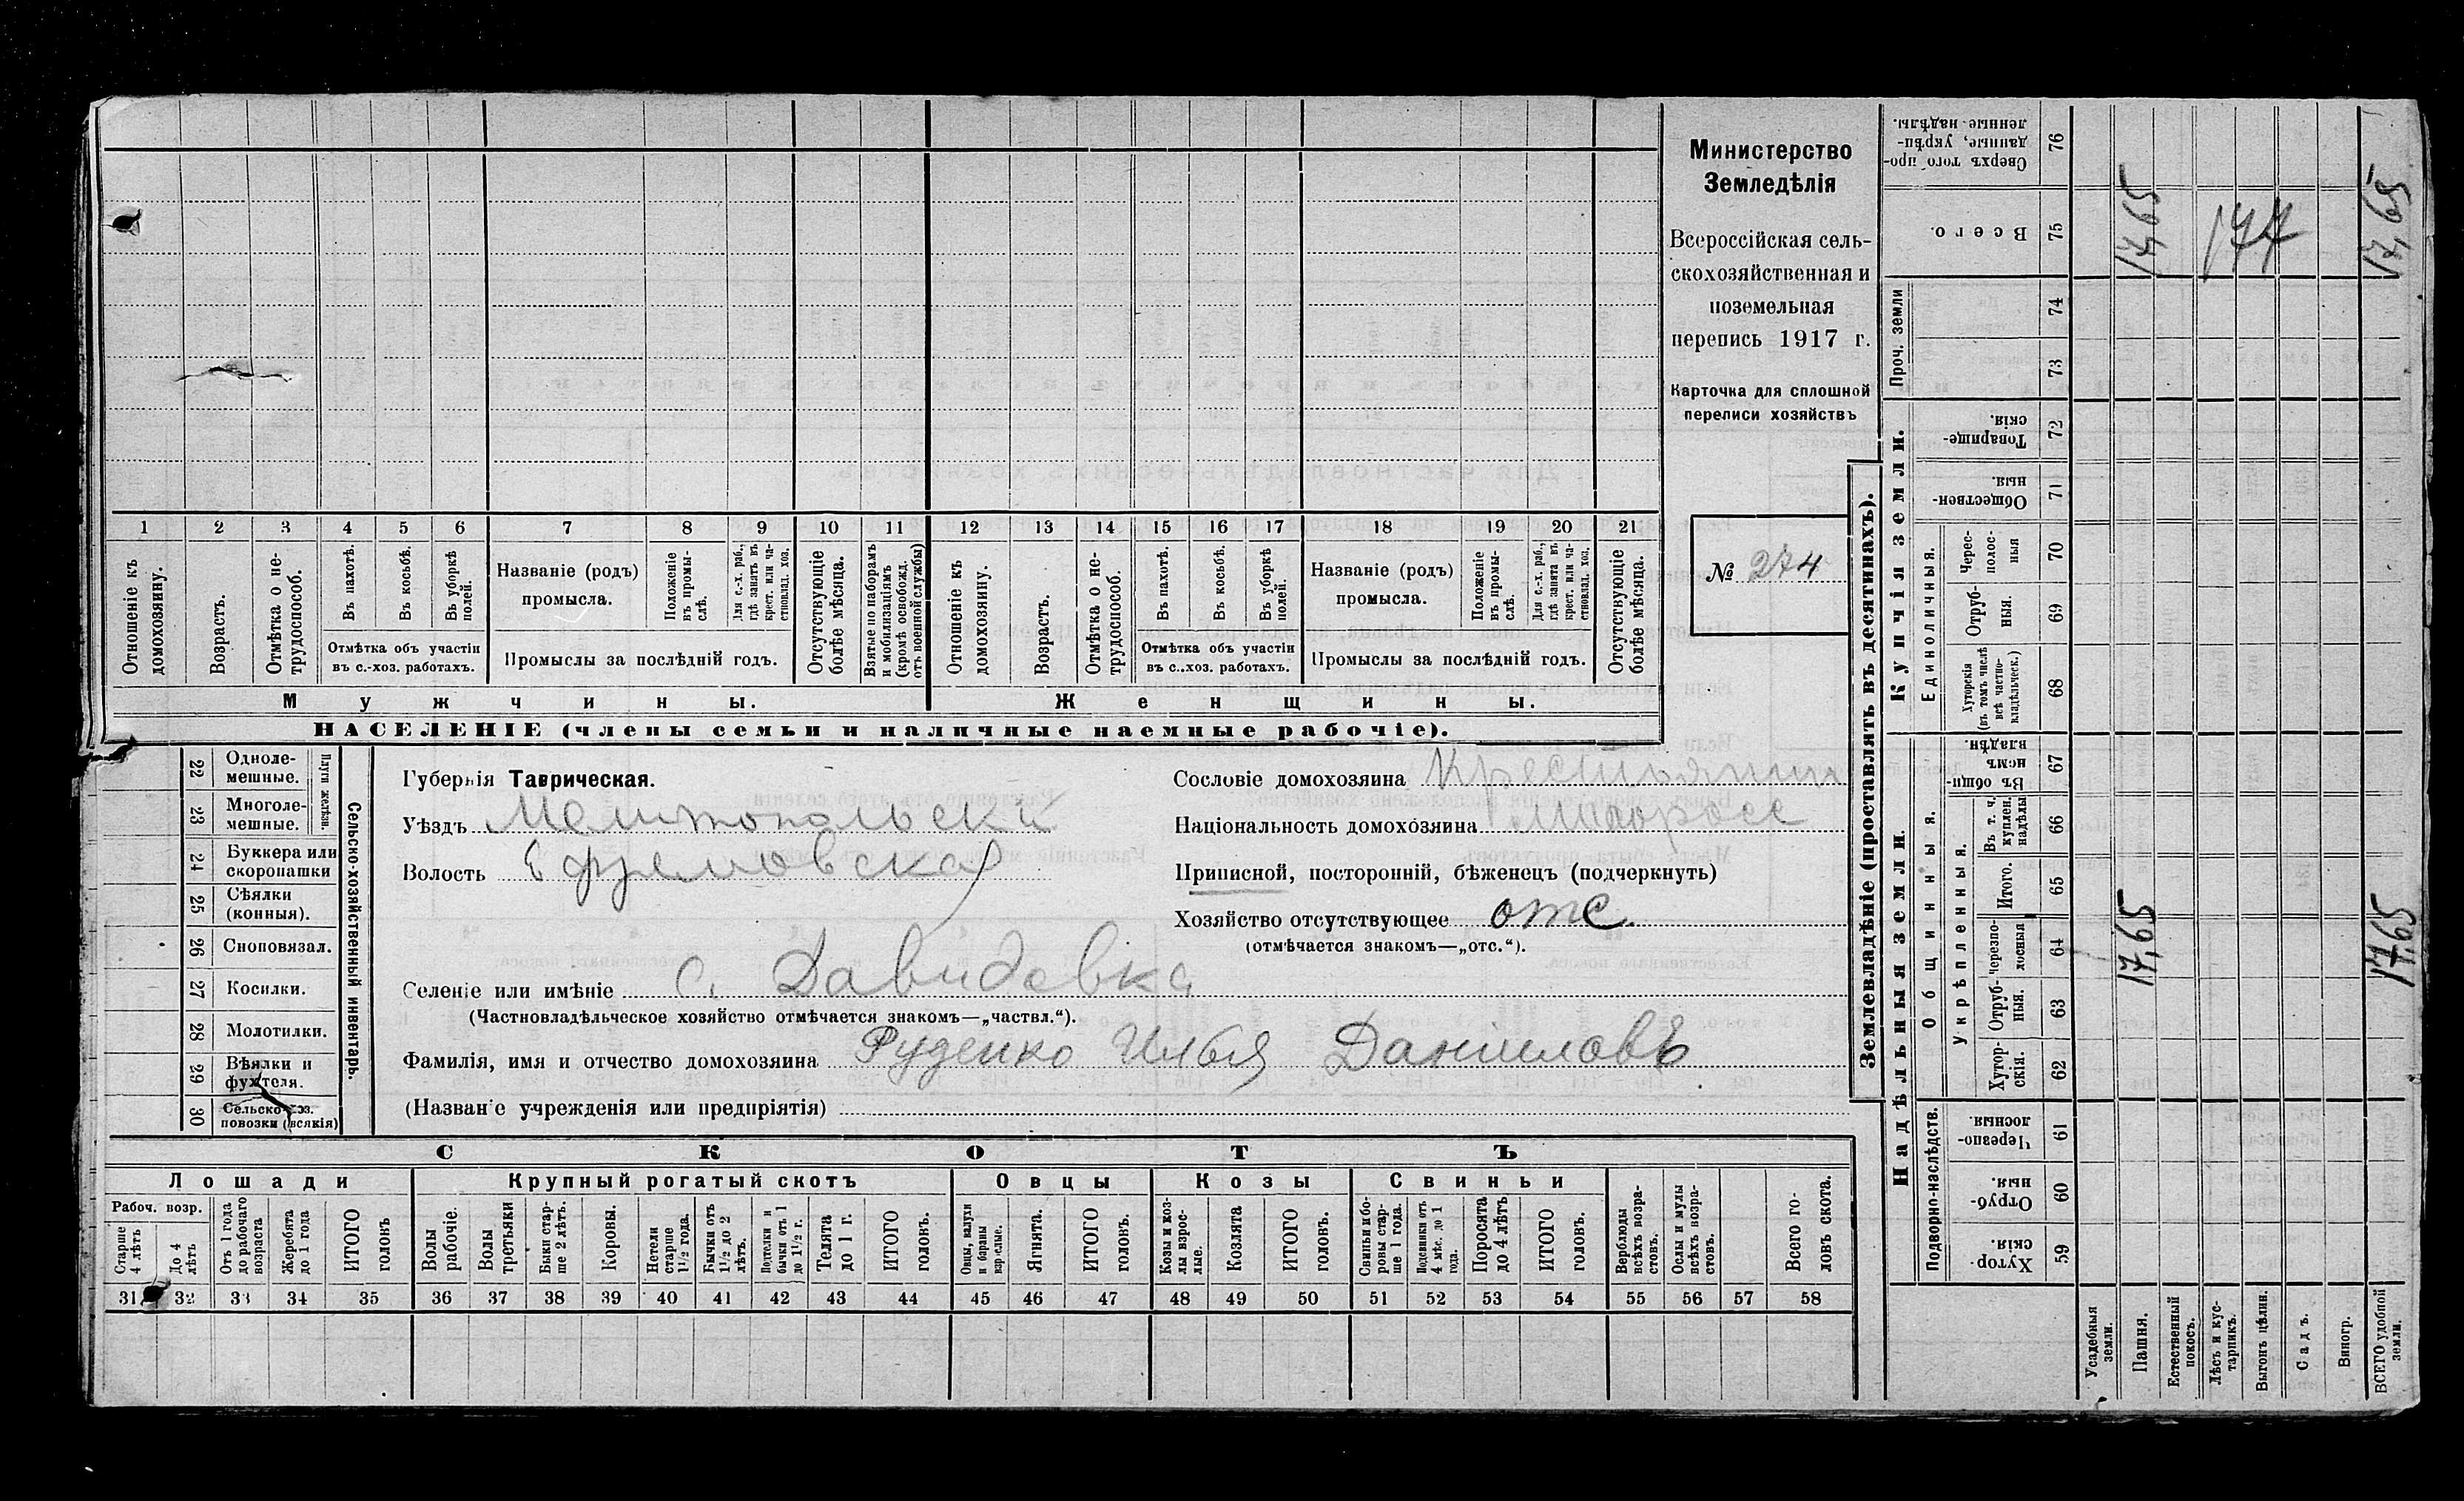 1 2 3 4 5 6 7 8 9 10 11 12 13 14 15 16 17 18 19 20 21
Отношеніе къ домохозяину.
Возрастъ.
Отмѣтка о не-
трудоспособ.
Въ пахотѣ.
Въ косьбѣ.
Въ уборкѣ
полей.
Отмѣтка объ участіи
въ с.-хоз. работахъ.
Названіе (родъ)
промысла.
Положеніе
въ промы-
слѣ.
Для с.-х. раб.,
гдѣ занятъ въ
крест. или ча-
стновлад. хоз.
Промыслы за послѣдній годъ.
Отсутствующіе
болѣе мѣсяца.
Взятые по наборамъ
и мобилизаціямъ
(кромѣ освобожд.
отъ военной службы)
Отношеніе къ
домохозяину.
Возрастъ.
Отмѣтка о не-
трудоспособ.
Въ пахотѣ.
Въ косьбѣ.
Въ уборкѣ
полей.
Отмѣтка объ участіи
въ с..хоз. работахъ.
Названіе (родъ)
промысла.
Положеніе
въ промы-
слѣ.
Для с.-х. раб.,
гдѣ занята въ
крест. или ча-
стновлад. хоз.
Промыслы за послѣдній годъ.
Отсутствующіе
болѣе мѣсяца.
Мужчины.
Женщины.
НАСЕЛЕНІЕ (члены семьи и наличные наемные рабочіе).
Министерство
Земледѣлія
Всероссійская сель-
скохозяйственная и
поземельная
перепись 1917 г.
Карточка для сплошной
переписи хозяйствъ
№ 274
22 Одноле-
мешные.
23 Многоле-
мешные.
Плуги желѣзн.
24 Буккера или
скоропашки
25 Сѣялки
(конныя).
26 Сноповязал.
27 Косилки.
28 Молотилки.
29 Вѣялки и
фухтеля.
30 Сельско-хоз.
повозки (всякія)
Сельско-хозяйственный инвентарь.
Губернія Таврическая.
Уѣздъ Мелитопольски
Волость Ефремовская
Сословіе домохозяина Крестьянин
Національность домохозяина малоросс
Приписной, посторонній, бѣженецъ (подчеркнуть)
Хозяйство отсутствующее отс.
(отмѣчается знакомъ—„отс.“).
Селеніе или имѣніе с. Давидовка
(Частновладѣльческое хозяйство отмѣчается знакомъ—„частвл.“).
Фамилія, имя и отчество домохозяина Руденко Илья Даніиловъ
(Названіе учрежденія или предпріятія)
СКОТЪ
Лошади
Крупный рогатый скотъ
Овцы
Козы
Свиньи
Рабоч. возр.
Старше
4 лѣтъ
До 4
лѣтъ
Отъ 1 года
до рабочаго
возраста
Жеребята
до 1 года
ИТОГО
головъ
Волы
рабочіе.
Волы
третьяки
Быки стар-
ше 2 лѣтъ.
Коровы.
Нетели
старше
1½ года.
Бычки отъ
1½ до 2
лѣтъ.
Подтелки и
бычки отъ 1
до 1½ г.
Телята
до 1 г.
ИТОГО
головъ.
Овцы, валухи
и бараны
взрослые.
Ягнята.
ИТОГО
головъ.
Козы и коз-
лы взрос-
лые.
Козлята
ИТОГО
головъ.
Свиньи и бо-
ровы стар-
ше 1 года.
Подсвинки отъ
4 мѣс. до 1
года.
Поросята
до 4 лѣтъ
ИТОГО
головъ.
Верблюды
всѣхъ возра-
стовъ.
Ослы и мулы
всѣхъ возра-
стовъ.
Всего го-
ловъ скота.
31 32 33 34 35 36 37 38 39 40 41 42 43 44 45 46 47 48 49 50 51 52 53 54 55 56 57 58
Землевладѣніе (проставлять въ десятинахъ).
Надѣльныя земли.
Купчія земли.
Проч. земли
Подворно-наслѣдств.
Общинныя.
Укрѣпленныя.
Единоличныя.
Сверхъ того про-
данные, укрѣп-
ленные надѣлы.
76
Всего.
75 17,65 177 17,65
74
73
Товарище-
скія.
72
Обществен-
ныя.
71
Черес-
полос-
ныя
70
Отруб-
ныя.
69
Хуторскія
(въ томъ числѣ
всѣ частно-
владѣльческ.)
68
Въ общи-
нномъ
владѣн.
67
Въ т. ч.
куплен.
надѣлы
66
Итого.
65
Черезпо-
лосныя
64 17,65 17,65
Отруб-
ныя.
63
Хутор-
скія.
62
Черезпо-
лосныя.
61
Отруб-
ныя.
60
Хутор-
скія.
59
Усадебныя
земли.
Пашня.
Естественный
покосъ.
Лѣсъ и кус-
тарникъ.
Выгонъ цѣлин.
Садъ.
Виногр.
ВСЕГО удобной
земли.